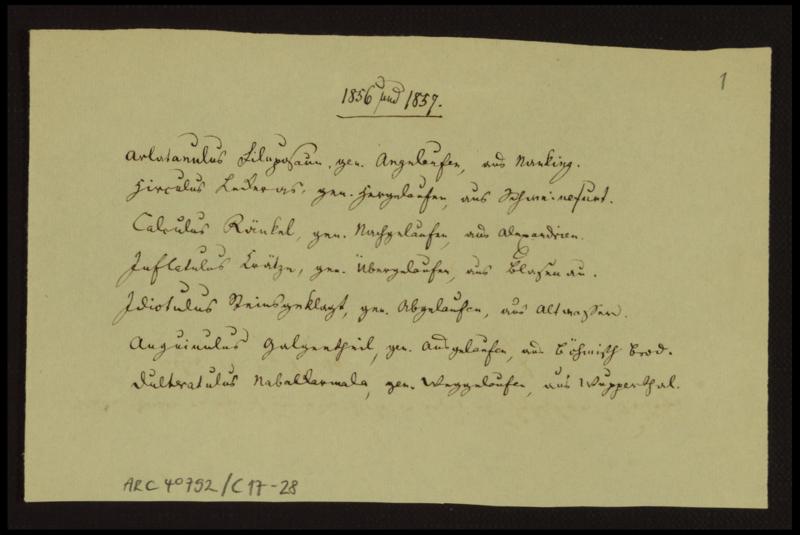 1
1856 und 1857.
Arlatanulus Filuposaun, gen. Angelaufen, aus Nanking.
Hirculus Lederas, gen. Hergelaufen, aus Schweinefurt.
Calculus Ränkel, gen. Nachgelaufen, aus Alexandrien.
Inflatulus Krätze, gen. Übergelaufen, aus Blasenau.
Idiotulus Steinsgeklagt, gen. Abgelaufen, aus Altwasser.
Anguinulus Galgentheil, gen. Ausgelaufen, aus Böhmisch Brod.
Dulteratulus Nabalkarmala, gen. Weggelaufen, aus Wupperthal.
ARC 4°792/C17-28